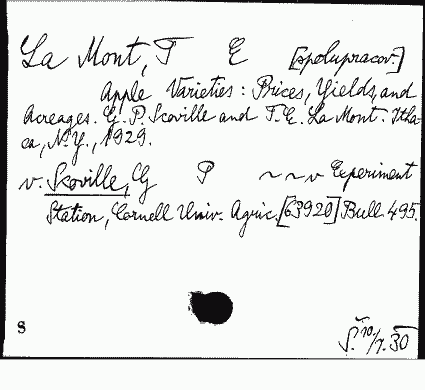 La Mont, T E [spolupracov.]
Apple Varieties: Prices, Yields, and
Acreages. G. P. Scoville and T. E. La Mont. Itha-
ca, N. Y., 1929.
v. Scoville, G P ~ ~ v Experiment
Station, Cornell Univ. Agric. [63920] Bull 495.
8